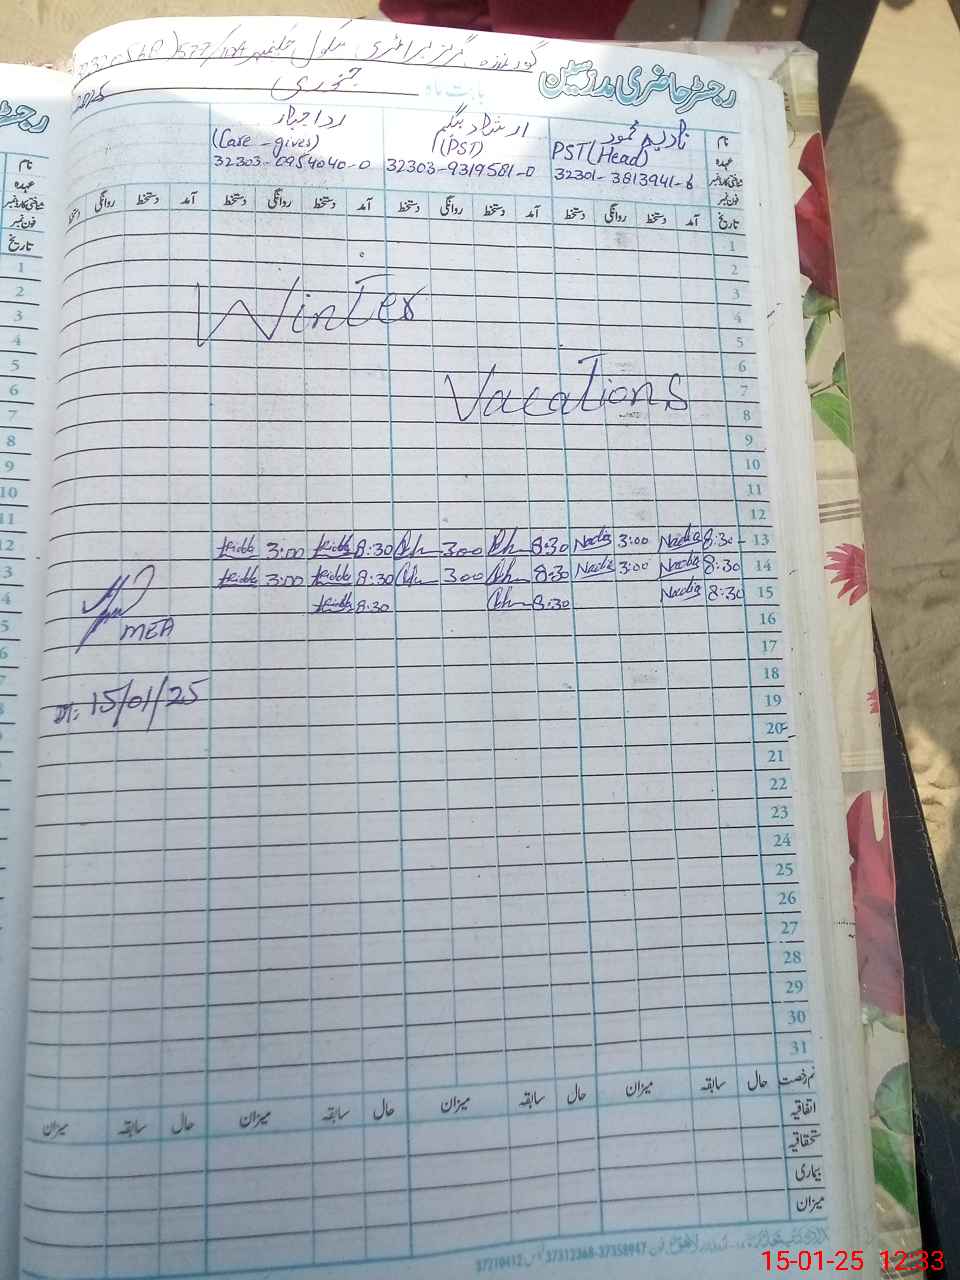 گورنمنٹ گرلز پرائمری سکول 577/TDA
رجسٹر حاضری مدرسین
بابت ماہ جنوری 2025
نام نادیہ محمود ارشاد بیگم ردا جبار
عہدہ PST (Head) (PST) (Care-giver)
شناختی کارڈ نمبر 32301-3813941-6 32303-9319581-0 32303-0954040-0
فون نمبر
تاریخ آمد دستخط روانگی دستخط آمد دستخط روانگی دستخط آمد دستخط روانگی دستخط آمد دستخط روانگی دستخط
1
2
3
Winter
4
5
6
7
Vacations
8
9
10
11
12
13 8:30 Nadia 3:00 Nadia 8:30 3:00 8:30 3:00
14 8:30 Nadia 3:00 Nadia 8:30 3:00 8:30 3:00
15 8:30 Nadia 8:30 8:30
MEA
16
17
18
Dt: 15/01/25
19
20
21
22
23
24
25
26
27
28
29
30
31
رخصت حال سابقہ میزان حال سابقہ میزان حال سابقہ میزان حال سابقہ میزان
اتفاقیہ
استحقاقیہ
بیماری
میزان
فون 37358947-37312368 37210412
15-01-25 12:33